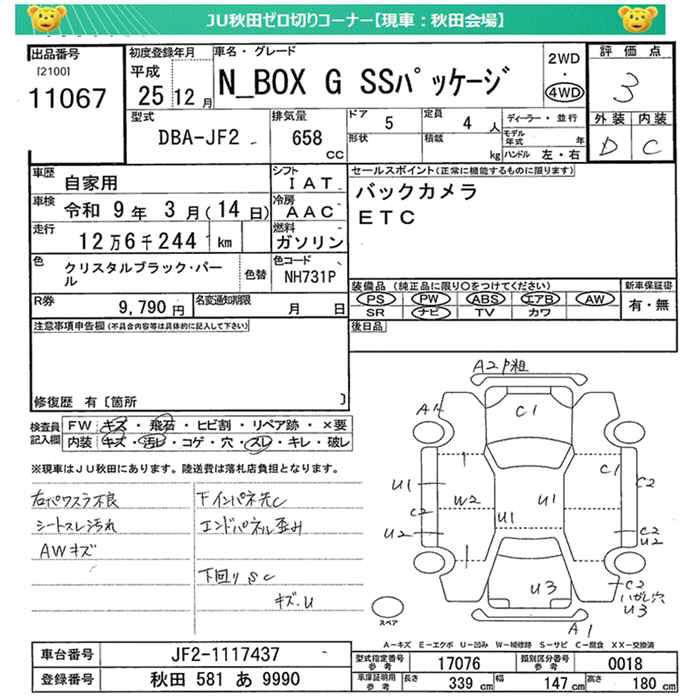 JU秋田ゼロ切りコーナー【現車：秋田会場】
出品番号
[2100]
11067
初度登録年月
平成
25 12月
車名・グレード
N_BOX G SSパッケージ
2WD
・
4WD
評価点
3
外装 内装
D C
型式
DBA-JF2
排気量
658
cc
ドア 5
定員 4 人
形状
積載 kg
ディーラー・並行
モデル年式 年
ハンドル 左・右
車歴 自家用
シフト IAT
車検 令和 9年 3月(14日)
冷房 AAC
走行 12万6千244 km
燃料 ガソリン
色 クリスタルブラック・パール
色替
色コード NH731P
R券 9,790円
名変通知期限 月 日
セールスポイント(正常に機能するものに限ります)
バックカメラ
ETC
装備品 (純正品に限り○をつけてください)
PS PW ABS エアB AW
SR ナビ TV カワ
新車保証書
有・無
後日品
注意事項申告欄(不具合内容等は具体的に記入して下さい)
修復歴 有〔箇所 〕
検査員記入欄
FW キズ・飛石・ヒビ割・リペア跡・×要
内装 キズ・汚レ・コゲ・穴・スレ・キレ・破レ
※現車はJU秋田にあります。陸送費は落札店負担となります。
右パワスラ不良
シートスレ汚れ
AWキズ
エンドパネル歪み
下回りSC
キズ.U
A2P粗
A1
C1
U1
C2
U2
W2
U1
U1
C1
C2
C2
U2
C2
U3
U3
A1
スペア
A－キズ E－エクボ U－凹み W－補修跡 S－サビ C－腐食 XX－交換済
車台番号 JF2-1117437
登録番号 秋田 581 あ 9990
型式指定番号参考 17076
類別区分番号参考 0018
車庫証明用参考 長さ 339 cm 幅 147 cm 高さ 180 cm